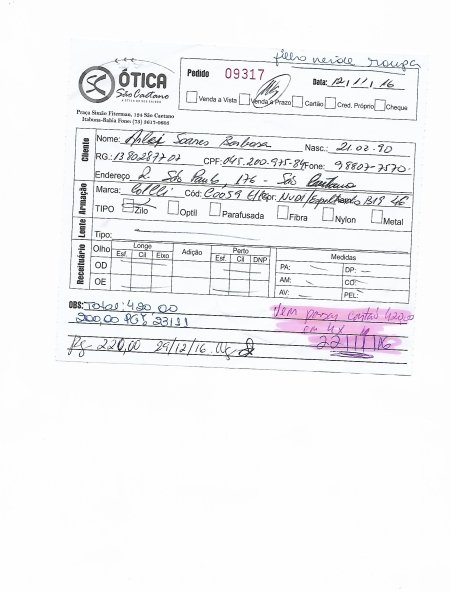 filho neide roupa
SC ÓTICA
São Caetano
Praça Simão Fiterman, 104 São Caetano
Itabuna-Bahia Fone: (73) 3617-0608
Pedido 09317 Data: 12/11/16
Venda a Vista Venda a Prazo Cartão Cred. Próprio Cheque
Cliente
Nome: Soares Barbosa Nasc.: 21.02.90
RG.: CPF: 045.200.975-84 Fone: 98807-7570
Endereço R. São Paulo, 176 - São Caetano
Armação
Marca: Colcci Cód: C0059 Cor: Nude/Espelhado B19 46
TIPO Zilo Optil Parafusada Fibra Nylon Metal
Lente
Tipo:
Receituário
Olho Longe Adição Perto Medidas
Esf. Cil Eixo Esf. Cil DNP
OD
OE
PA: DP:
AM: CO:
AV: PEL:
OBS: Total: 420,00
200,00 23/11
Vem passar cartão 420,00
em 4x
22/11/16
Pg 220,00 29/12/16